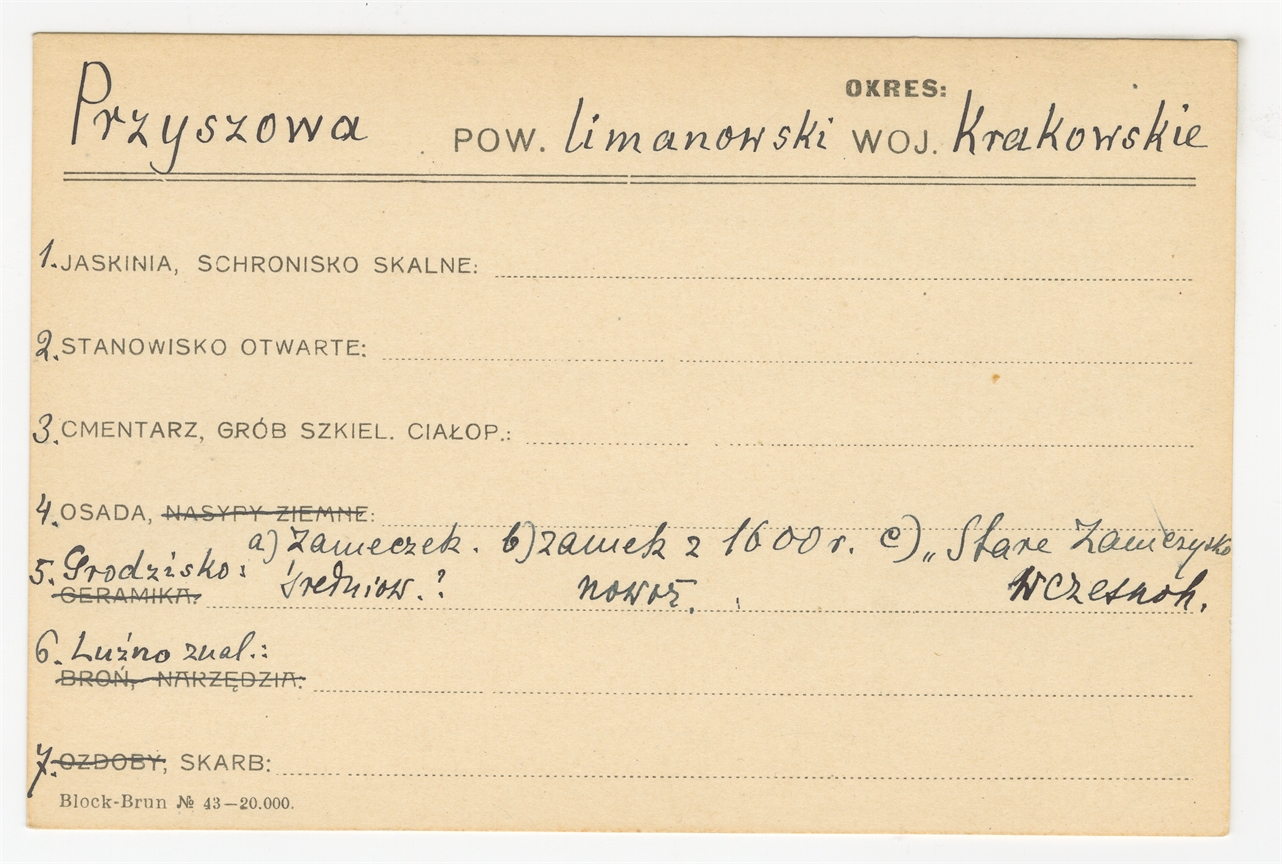 OKRES:
Przyszowa POW. limanowski WOJ. Krakowskie
1. JASKINIA, SCHRONISKO SKALNE:
2. STANOWISKO OTWARTE:
3. CMENTARZ, GRÓB SZKIEL. CIAŁOP.:
4. OSADA, NASYPY ZIEMNE:
5. Grodzisko: a) Zameczek. b) zamek z 1600 r. c) „Stare Zamczysko
CERAMIKA: średniow.? nowoż. wczesnoh.
6. Luźno znal.:
BROŃ, NARZĘDZIA:
7. OZDOBY, SKARB:
Block-Brun № 43—20.000.